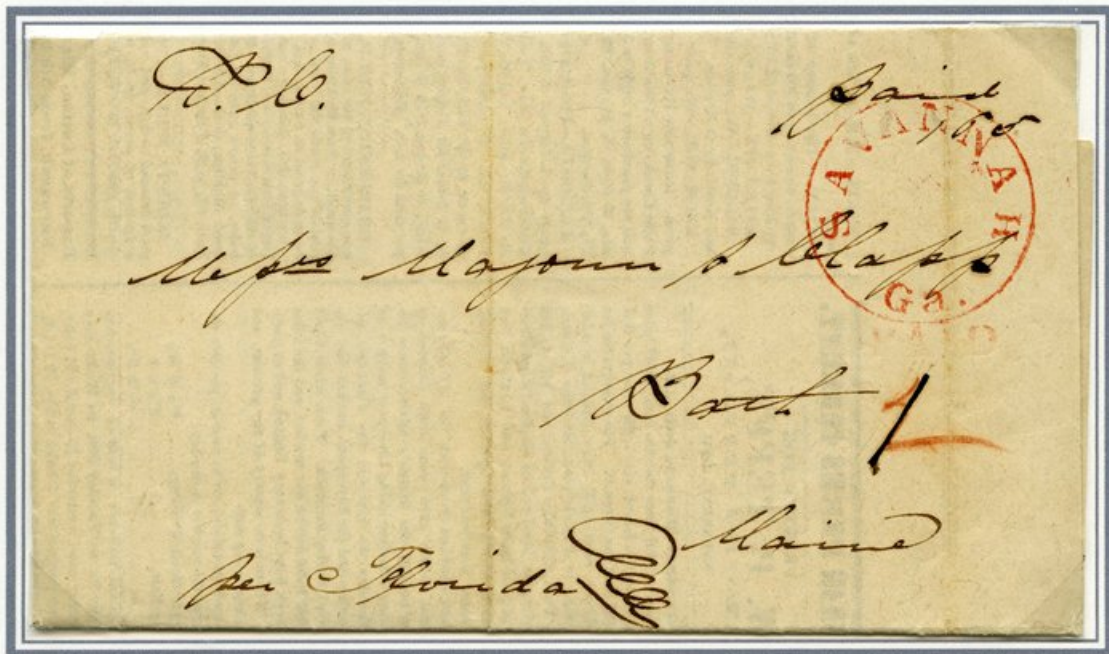 P. C.
paid
SAVANNAH
Ga.
PAID
Messrs Magoun & Clapp
Bath
Maine
per Florida